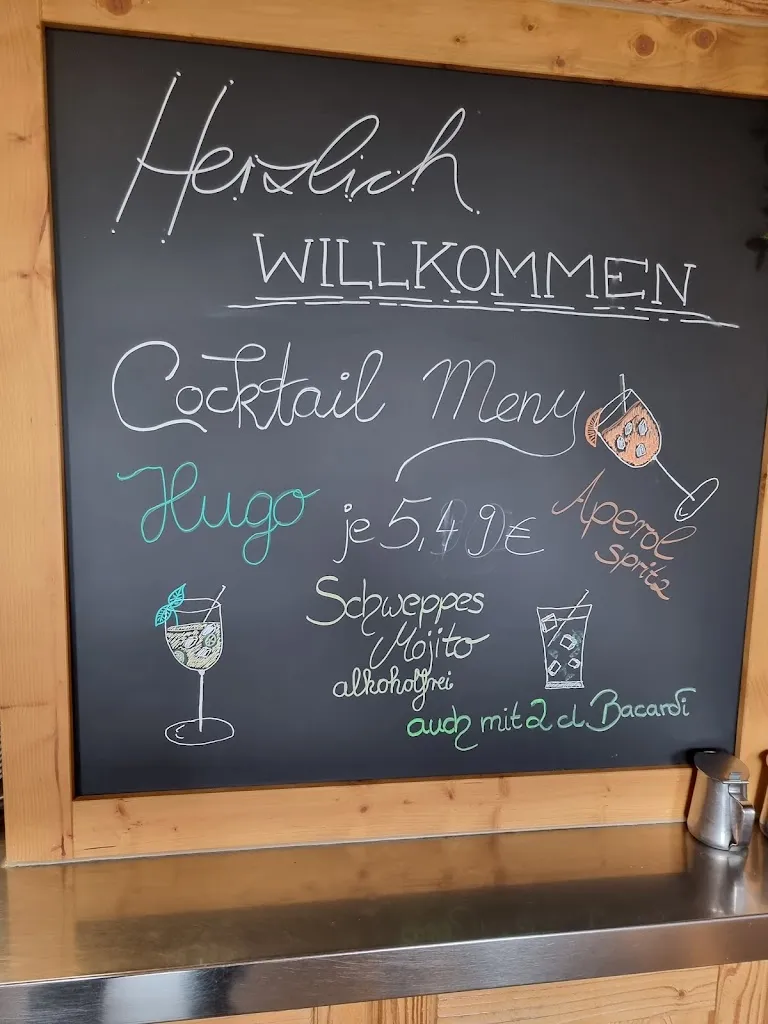 Herzlich
WILLKOMMEN
Cocktail Meny
Hugo
je 5,49€
Aperol
spritz
Schweppes
Mojito
alkoholfrei
auch mit 2 cl Bacardi